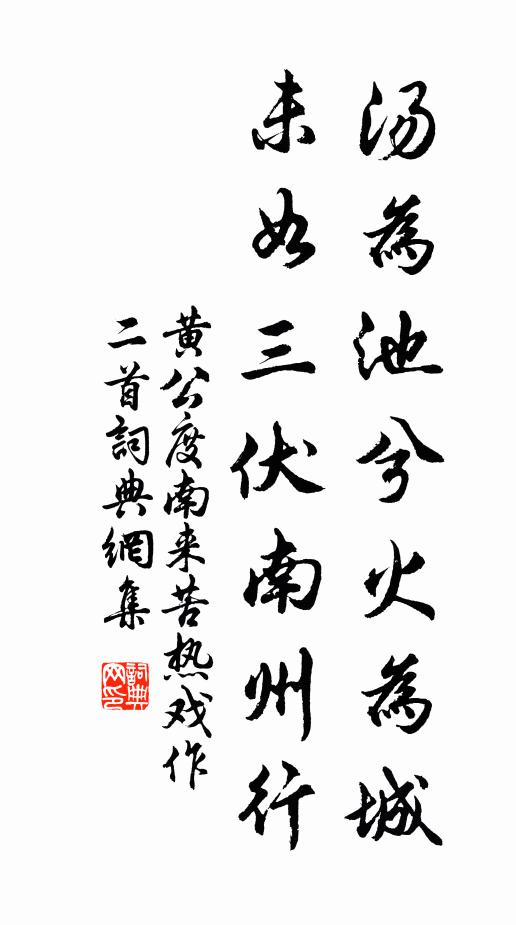 汤為池兮火為城
未如三伏南州行
黄公度南来苦热戏作
二首詞典網集
詞典網印